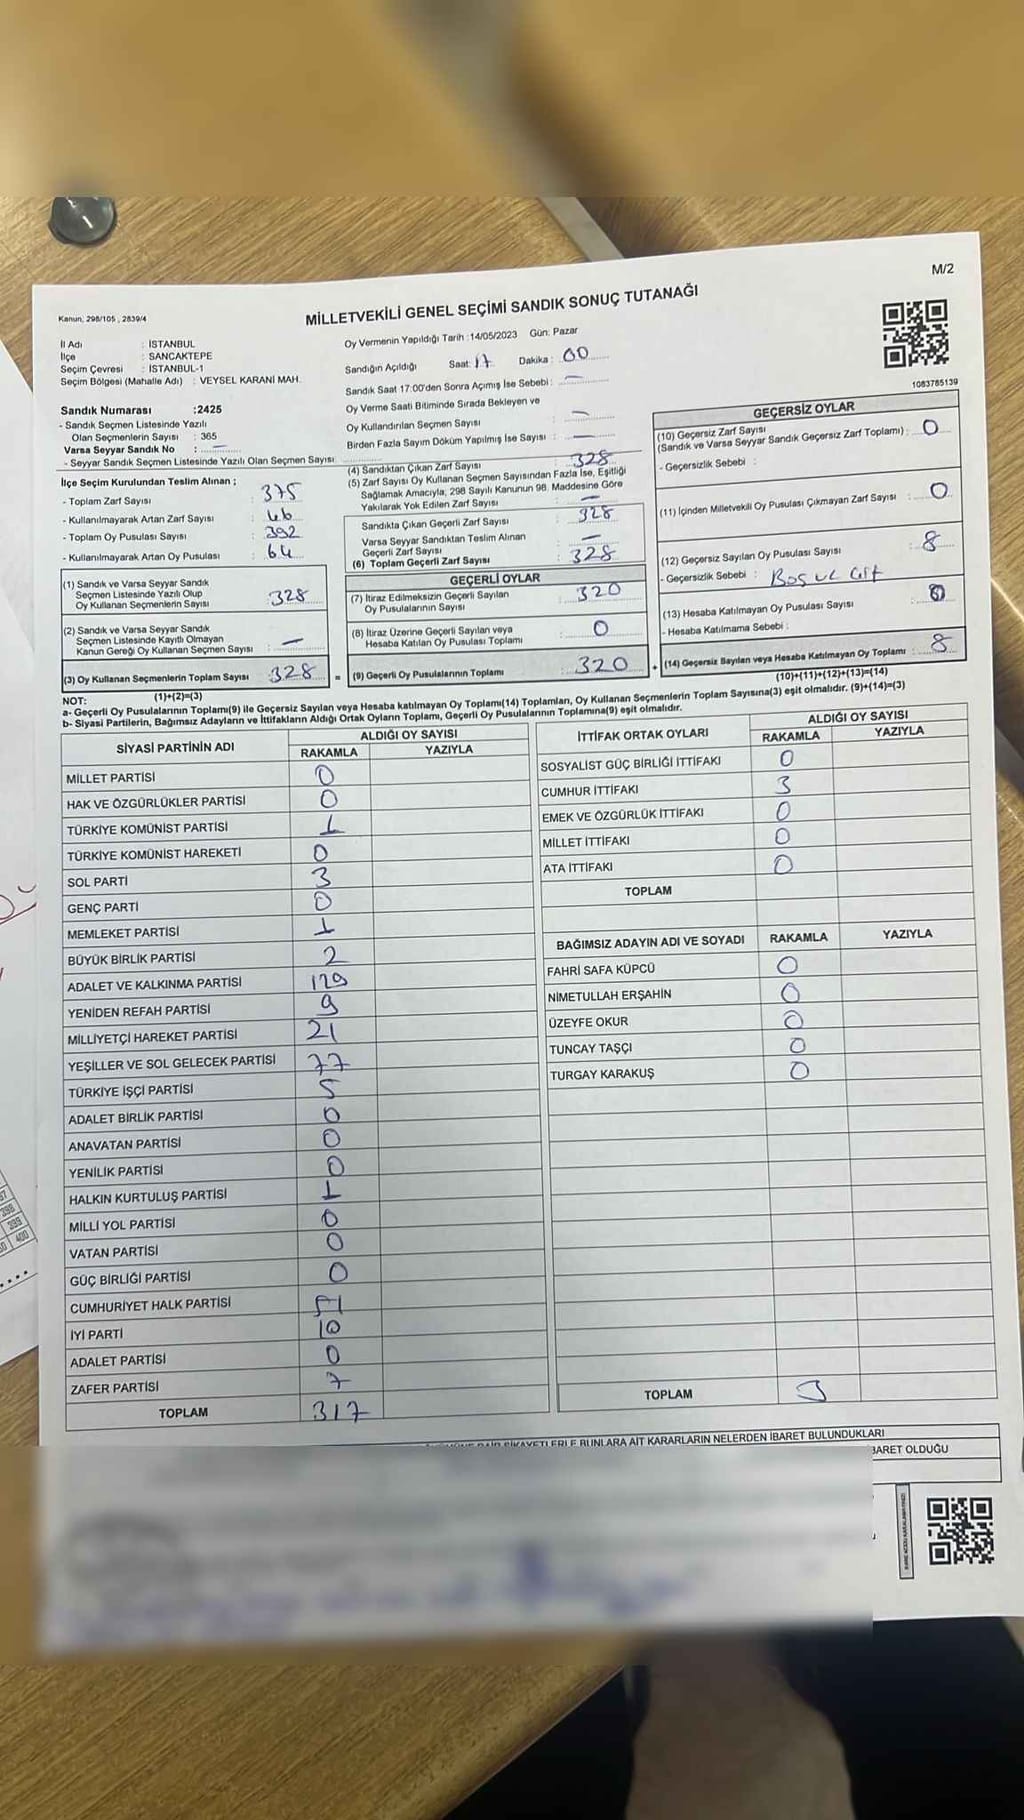 M/2
MİLLETVEKİLİ GENEL SEÇİMİ SANDIK SONUÇ TUTANAĞI
Kanun: 298/105 , 2839/4
İl Adı : İSTANBUL
İlçe : SANCAKTEPE
Seçim Çevresi : İSTANBUL-1
Seçim Bölgesi (Mahalle Adı) : VEYSEL KARANİ MAH.
Sandık Numarası :2425
- Sandık Seçmen Listesinde Yazılı
Olan Seçmenlerin Sayısı : 365
Varsa Seyyar Sandık No : —
- Seyyar Sandık Seçmen Listesinde Yazılı Olan Seçmen Sayısı:
İlçe Seçim Kurulundan Teslim Alınan ;
- Toplam Zarf Sayısı : 375
- Kullanılmayarak Artan Zarf Sayısı : 46
- Toplam Oy Pusulası Sayısı : 392
- Kullanılmayarak Artan Oy Pusulası : 64
(1) Sandık ve Varsa Seyyar Sandık
Seçmen Listesinde Yazılı Olup
Oy Kullanan Seçmenlerin Sayısı : 328
(2) Sandık ve Varsa Seyyar Sandık
Seçmen Listesinde Kayıtlı Olmayan
Kanun Gereği Oy Kullanan Seçmen Sayısı : —
(3) Oy Kullanan Seçmenlerin Toplam Sayısı : 328 =
(1)+(2)=(3)
Oy Vermenin Yapıldığı Tarih :14/05/2023 Gün: Pazar
Sandığın Açıldığı Saat: 17 Dakika : 00
Sandık Saat 17:00'den Sonra Açımış İse Sebebi : —
Oy Verme Saati Bitiminde Sırada Bekleyen ve
Oy Kullandırılan Seçmen Sayısı : —
Birden Fazla Sayım Döküm Yapılmış İse Sayısı : —
(4) Sandıktan Çıkan Zarf Sayısı : 328
(5) Zarf Sayısı Oy Kullanan Seçmen Sayısından Fazla İse, Eşitliği
Sağlamak Amacıyla, 298 Sayılı Kanunun 98. Maddesine Göre
Yakılarak Yok Edilen Zarf Sayısı : —
Sandıkta Çıkan Geçerli Zarf Sayısı : 328
Varsa Seyyar Sandıktan Teslim Alınan
Geçerli Zarf Sayısı : —
(6) Toplam Geçerli Zarf Sayısı : 328
GEÇERLİ OYLAR
(7) İtiraz Edilmeksizin Geçerli Sayılan
Oy Pusulalarının Sayısı : 320
(8) İtiraz Üzerine Geçerli Sayılan veya
Hesaba Katılan Oy Pusulası Toplamı : 0
(9) Geçerli Oy Pusulalarının Toplamı : 320 +
1083785139
GEÇERSİZ OYLAR
(10) Geçersiz Zarf Sayısı
(Sandık ve Varsa Seyyar Sandık Geçersiz Zarf Toplamı) : 0
- Geçersizlik Sebebi :
(11) İçinden Milletvekili Oy Pusulası Çıkmayan Zarf Sayısı : 0
(12) Geçersiz Sayılan Oy Pusulası Sayısı : 8
- Geçersizlik Sebebi :
(13) Hesaba Katılmayan Oy Pusulası Sayısı :
- Hesaba Katılmama Sebebi :
(14) Geçersiz Sayılan veya Hesaba Katılmayan Oy Toplamı : 8
(10)+(11)+(12)+(13)=(14)
NOT:
a- Geçerli Oy Pusulalarının Toplamı(9) ile Geçersiz Sayılan veya Hesaba katılmayan Oy Toplamı(14) Toplamları, Oy Kullanan Seçmenlerin Toplam Sayısına(3) eşit olmalıdır. (9)+(14)=(3)
b- Siyasi Partilerin, Bağımsız Adayların ve İttifakların Aldığı Ortak Oyların Toplamı, Geçerli Oy Pusulalarının Toplamına(9) eşit olmalıdır.
SİYASİ PARTİNİN ADI ALDIĞI OY SAYISI
RAKAMLA YAZIYLA
MİLLET PARTİSİ 0
HAK VE ÖZGÜRLÜKLER PARTİSİ 0
TÜRKİYE KOMÜNİST PARTİSİ 1
TÜRKİYE KOMÜNİST HAREKETİ 0
SOL PARTİ 3
GENÇ PARTİ 0
MEMLEKET PARTİSİ 1
BÜYÜK BİRLİK PARTİSİ 2
ADALET VE KALKINMA PARTİSİ 179
YENİDEN REFAH PARTİSİ 9
MİLLİYETÇİ HAREKET PARTİSİ 21
YEŞİLLER VE SOL GELECEK PARTİSİ 77
TÜRKİYE İŞÇİ PARTİSİ 5
ADALET BİRLİK PARTİSİ 0
ANAVATAN PARTİSİ 0
YENİLİK PARTİSİ 0
HALKIN KURTULUŞ PARTİSİ 1
MİLLİ YOL PARTİSİ 0
VATAN PARTİSİ 0
GÜÇ BİRLİĞİ PARTİSİ 0
CUMHURİYET HALK PARTİSİ 51
İYİ PARTİ 10
ADALET PARTİSİ 0
ZAFER PARTİSİ 7
TOPLAM 317
İTTİFAK ORTAK OYLARI ALDIĞI OY SAYISI
RAKAMLA YAZIYLA
SOSYALİST GÜÇ BİRLİĞİ İTTİFAKI 0
CUMHUR İTTİFAKI 3
EMEK VE ÖZGÜRLÜK İTTİFAKI 0
MİLLET İTTİFAKI 0
ATA İTTİFAKI 0
TOPLAM
BAĞIMSIZ ADAYIN ADI VE SOYADI RAKAMLA YAZIYLA
FAHRİ SAFA KÜPCÜ 0
NİMETULLAH ERŞAHİN 0
ÜZEYFE OKUR 0
TUNCAY TAŞÇI 0
TURGAY KARAKUŞ 0
TOPLAM 3
ŞİKAYETLERLE BUNLARA AİT KARARLARIN NELERDEN İBARET BULUNDUKLARI
BARET OLDUĞU
398
399
400